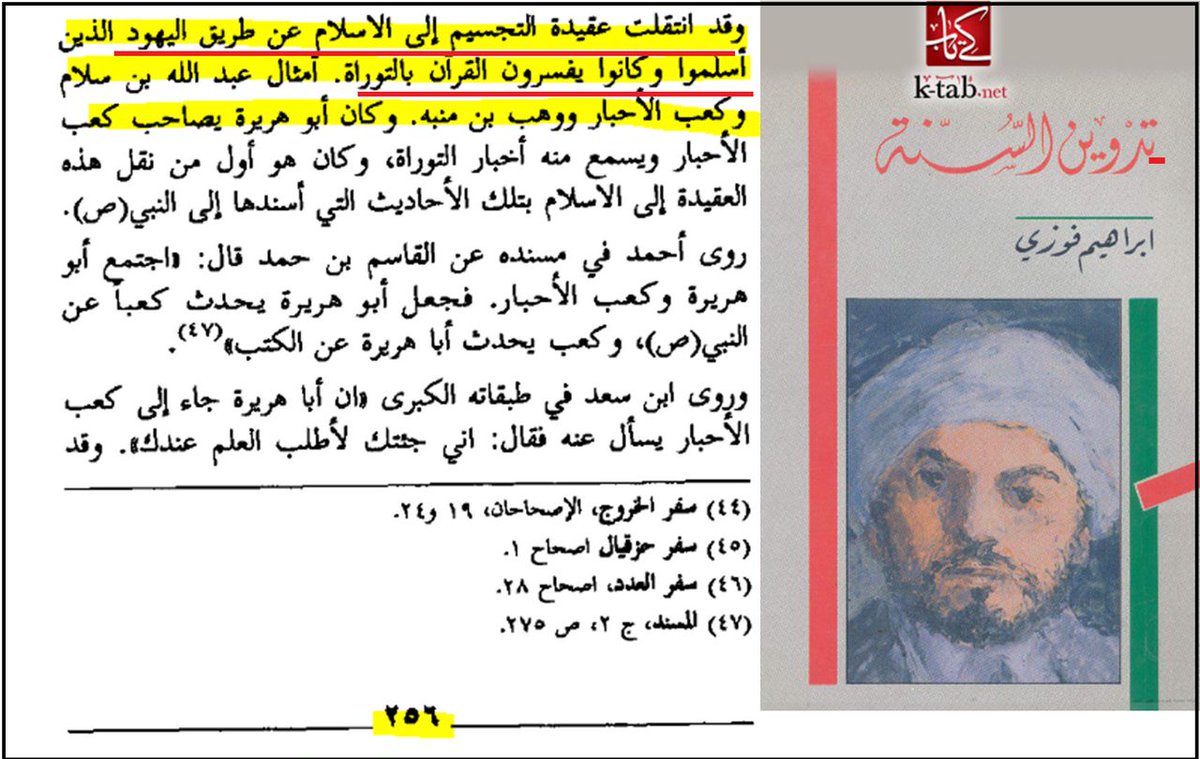 وقد انتقلت عقيدة التجسيم إلى الاسلام عن طريق اليهود الذين
أسلموا وكانوا يفسرون القرآن بالتوراة. امثال عبد الله بن سلام
وكعب الأحبار ووهب بن منبه. وكان أبو هريرة يصاحب كعب
الأحبار ويسمع منه أخبار التوراة، وكان هو أول من نقل هذه
العقيدة إلى الاسلام بتلك الأحاديث التي أسندها إلى النبي(ص).
روى أحمد في مسنده عن القاسم بن حمد قال: «اجتمع أبو
هريرة وكعب الأحبار. فجعل أبو هريرة يحدث كعباً عن
النبي(ص)، وكعب يحدث أبا هريرة عن الكتب»(٤٧).
وروى ابن سعد في طبقاته الكبرى «ان أبا هريرة جاء إلى كعب
الأحبار يسأل عنه فقال: اني جئتك لأطلب العلم عندك». وقد
(٤٤) سفر الخروج، الإصحاحان، ١٩ و٢٤.
(٤٥) سفر حزقيال اصحاح ١.
(٤٦) سفر العدد، اصحاح ٢٨.
(٤٧) المسند، ج ٢، ص ٢٧٥.
٢٥٦
كتاب
k-tab.net
تدوين السّنة
ابراهيم فوزي